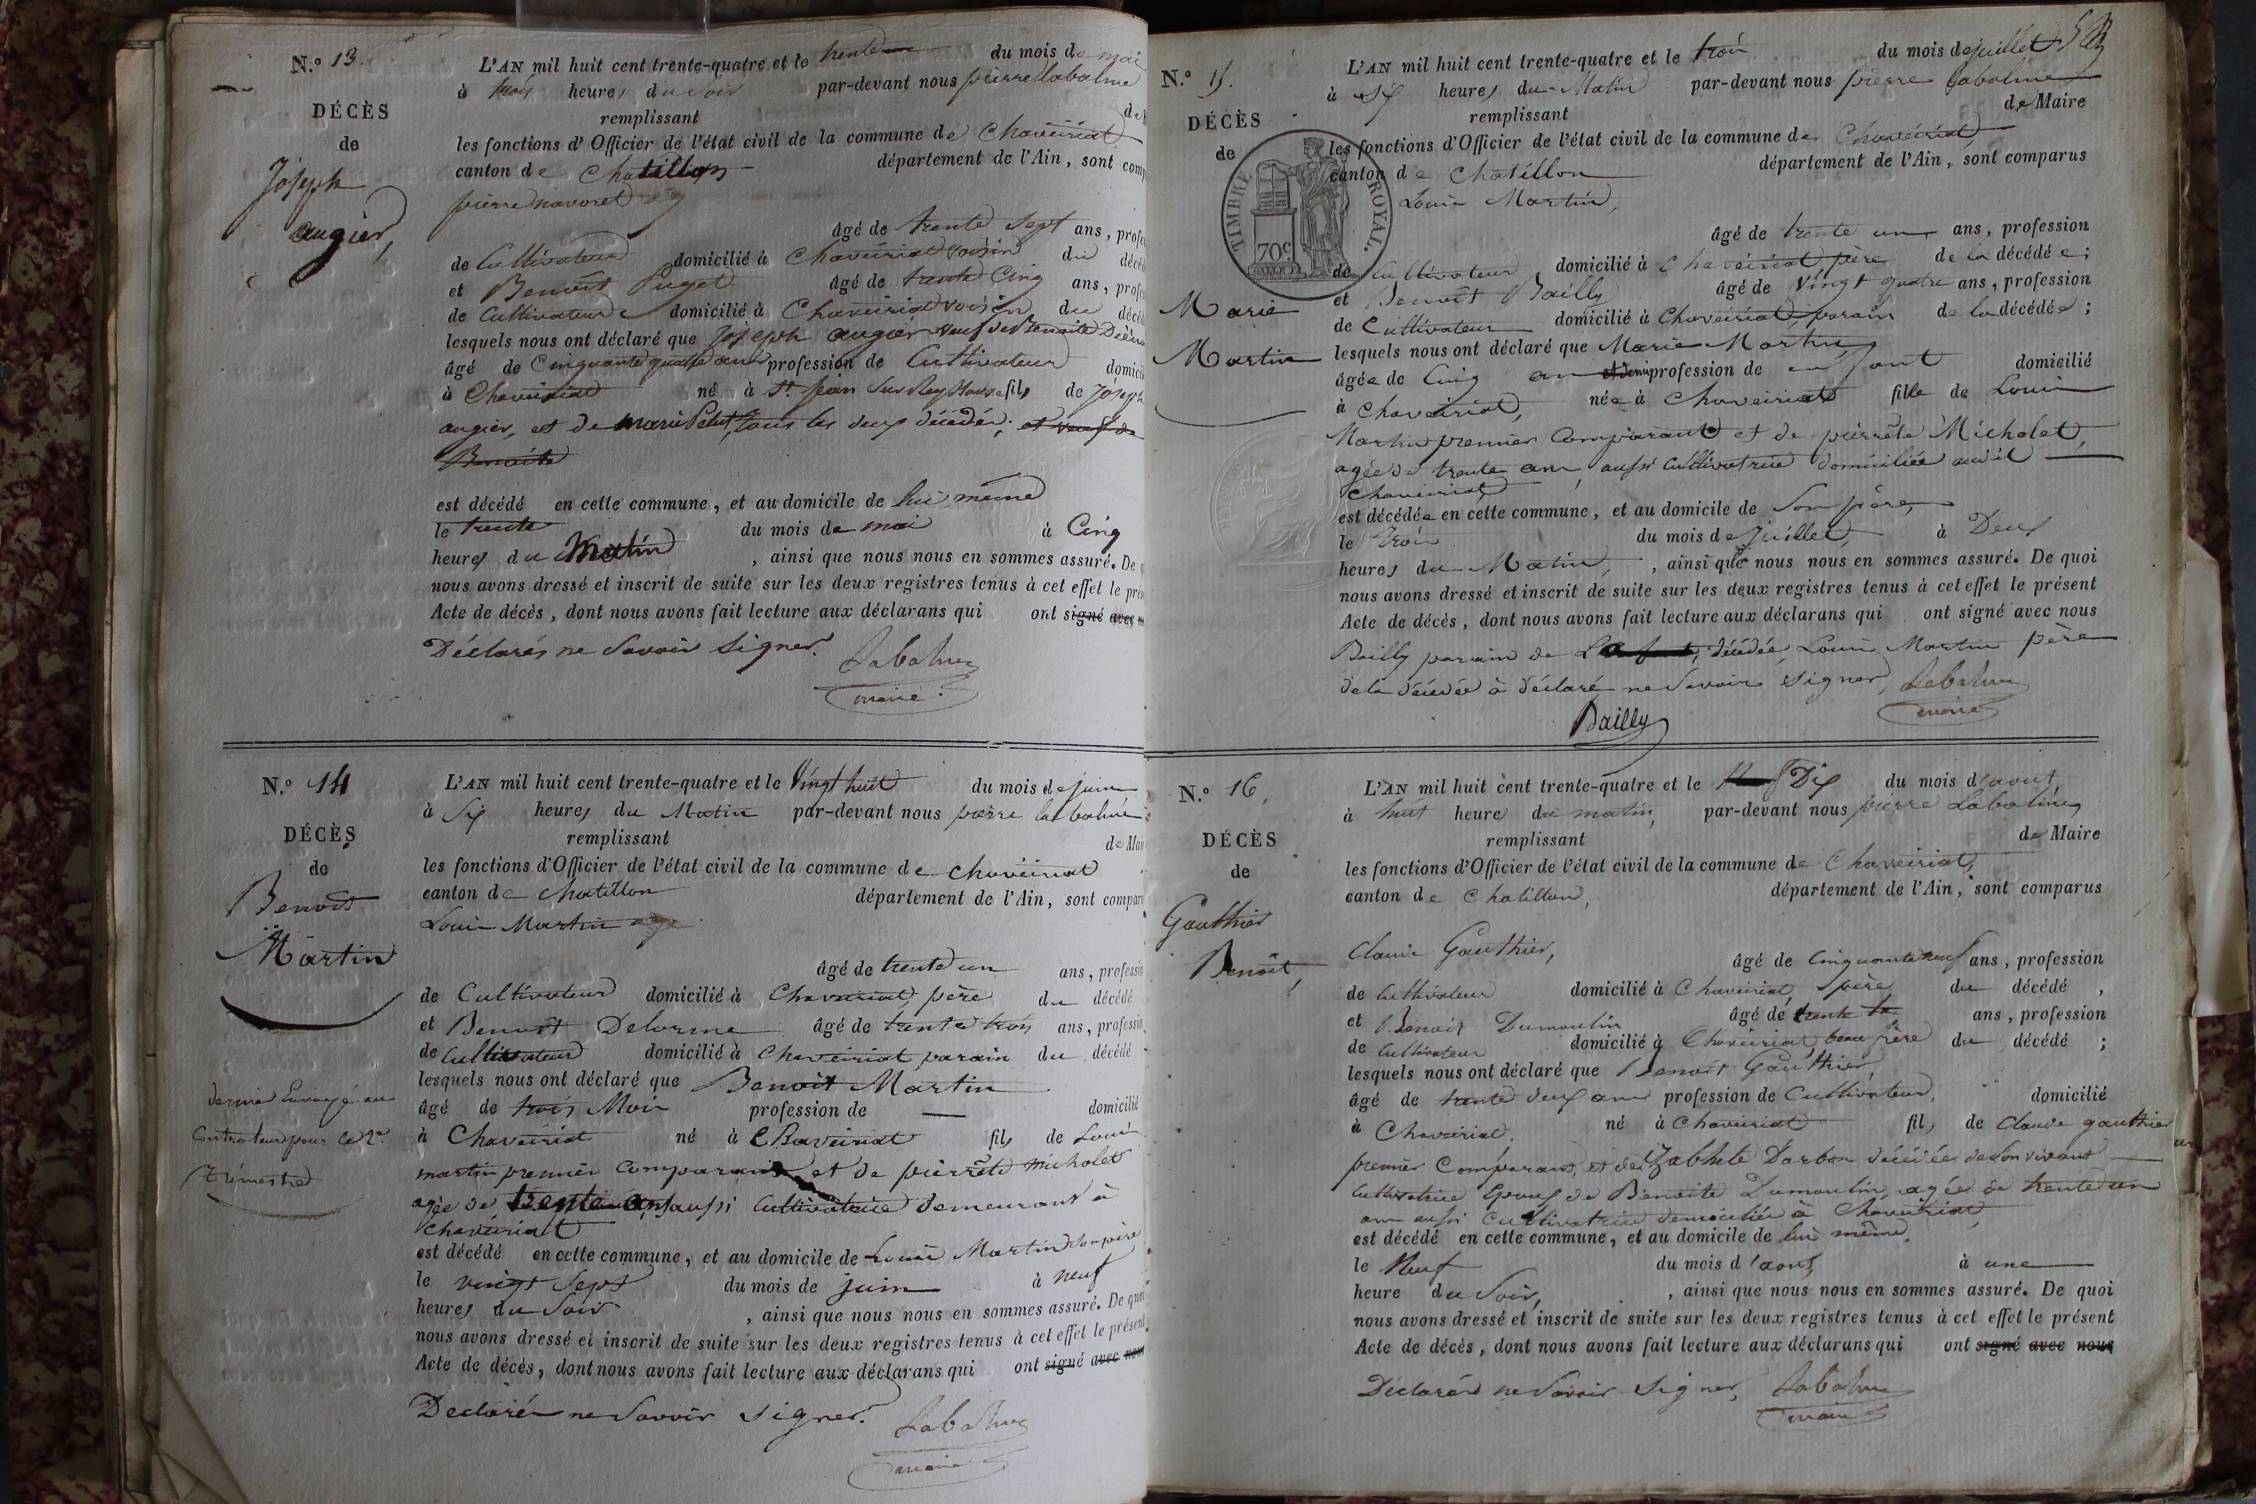 N.º 13.
DÉCÈS
de
Joseph
augier,
L'AN mil huit cent trente-quatre et le trente du mois de mai
à trois heures du soir par-devant nous pierre Labalme
remplissant de
les fonctions d'Officier de l'état civil de la commune de Chaveiriat
canton de Chatillon département de l'Ain, sont comp
pierre navoret
âgé de trente sept ans, profe
de Cultivateur domicilié à Chaveiriat voisin du décé
et Benoît Puget âgé de trente Cinq ans, profe
de Cultivateur domicilié à Chaveiriat voisin du décé
lesquels nous ont déclaré que Joseph augier veuf de Benoite
âgé de Cinquante quatre ans profession de Cultivateur domici
à Chaveiriat né à St jean sur Reyssouse fils de Joseph
augier, et de marie Petit, tous les deux décédés; et veuf de
Benoite
est décédé en cette commune, et au domicile de lui même
le trente du mois de mai à Cinq
heures du Matin, ainsi que nous nous en sommes assuré. De q
nous avons dressé et inscrit de suite sur les deux registres tenus à cet effet le prés
Acte de décès, dont nous avons fait lecture aux déclarans qui ont signé avec n
Déclarés ne Savoir signer. Labalme
maire.
N.º 14
DÉCÈS
de
Benoît
Martin
dernier Envoyé au
Controleur pour le 2e
trimestre
L'AN mil huit cent trente-quatre et le Vingt huit du mois de juin
à Six heures du Matin par-devant nous pierre labalme
remplissant de Mai
les fonctions d'Officier de l'état civil de la commune de chaveiriat
canton de chatillon département de l'Ain, sont compar
Louis Martin
âgé de trente un ans, profession
de Cultivateur domicilié à Chaveiriat père du décédé
et Benoît Delorme âgé de trente trois ans, profession
de Cultivateur domicilié à Chaveiriat parain du décédé
lesquels nous ont déclaré que Benoit Martin
âgé de trois Mois profession de — domicilié
à Chaveiriat né à Chaveiriat fils de Louis
martin premier Comparant et de pierrete micholet
agée de trente ans aussi Cultivatrice demeurant à
Chaveiriat
est décédé en cette commune, et au domicile de Louis Martin Son père
le vingt Sept du mois de juin à neuf
heures du Soir, ainsi que nous nous en sommes assuré. De quoi
nous avons dressé et inscrit de suite sur les deux registres tenus à cet effet le présent
Acte de décès, dont nous avons fait lecture aux déclarans qui ont signé avec nous
Declarés ne Savoir signer. Labalme
maire
N.º 15.
DÉCÈS
de
TIMBRE ROYAL.
70c
Marie
Martin
L'AN mil huit cent trente-quatre et le trois du mois de juillet
à six heures du Matin par-devant nous pierre Labalme
remplissant de Maire
les fonctions d'Officier de l'état civil de la commune de Chaveiriat,
canton de Chatillon département de l'Ain, sont comparus
Louis Martin,
âgé de trente un ans, profession
de Cultivateur domicilié à Chaveiriat père de la décédée;
et Benoît Bailly âgé de Vingt quatre ans, profession
de Cultivateur domicilié à Chaveiriat, parain de la décédée;
lesquels nous ont déclaré que Marie Martin,
âgée de Cinq an et demi profession de enfant domicilié
à Chaveiriat, née à Chaveiriat fille de Louis
Martin premier Comparant et de pierrete Micholet,
agée de trente ans, aussi Cultivatrice domiciliée audit
Chaveiriat
est décédée en cette commune, et au domicile de Son père
le trois du mois de juillet, à Deux
heures du Matin, , ainsi que nous nous en sommes assuré. De quoi
nous avons dressé et inscrit de suite sur les deux registres tenus à cet effet le présent
Acte de décès, dont nous avons fait lecture aux déclarans qui ont signé avec nous
Bailly parain de la décédée, Louis Martin père
dela décédée à déclaré ne Savoir signer, Labalme
Bailly maire
N.º 16,
DÉCÈS
de
Gauthier
Benoît,
L'AN mil huit cent trente-quatre et le Neuf Dix du mois d'aout,
à huit heure du matin, par-devant nous pierre Labalme,
remplissant de Maire
les fonctions d'Officier de l'état civil de la commune de Chaveiriat,
canton de Chatillon, département de l'Ain, sont comparus
Claude Gauthier,
âgé de Cinquante neuf ans, profession
de Cultivateur domicilié à Chaveiriat, père du décédé,
et Benoit Dumoulin âgé de trente ans, profession
de Cultivateur domicilié à Chaveiriat, beau frère du décédé;
lesquels nous ont déclaré que Benoît Gauthier,
âgé de trente deux ans profession de Cultivateur, domicilié
à Chaveiriat, né à Chaveiriat fils de Claude gauthier
premier Comparant, et de Darbon décédée de Son vivant
Cultivatrice Epoux de Benoite Dumoulin, agée de trente un
ans aussi Cultivatrice domiciliée à Chaveiriat,
est décédé en cette commune, et au domicile de lui même,
le Neuf du mois d'aout, à une
heure du Soir, , ainsi que nous nous en sommes assuré. De quoi
nous avons dressé et inscrit de suite sur les deux registres tenus à cet effet le présent
Acte de décès, dont nous avons fait lecture aux déclarans qui ont signé avec nous
Déclarés ne Savoir signer, Labalme
maire